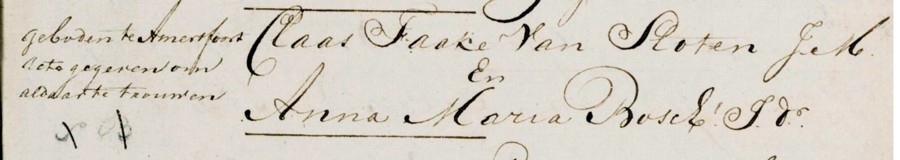 geboden te Amersfort
Acte gegeven om
aldaar te trouwen
Claas Faake Van Sloten J. M.
En
Anna Maria Bosch J. dr.